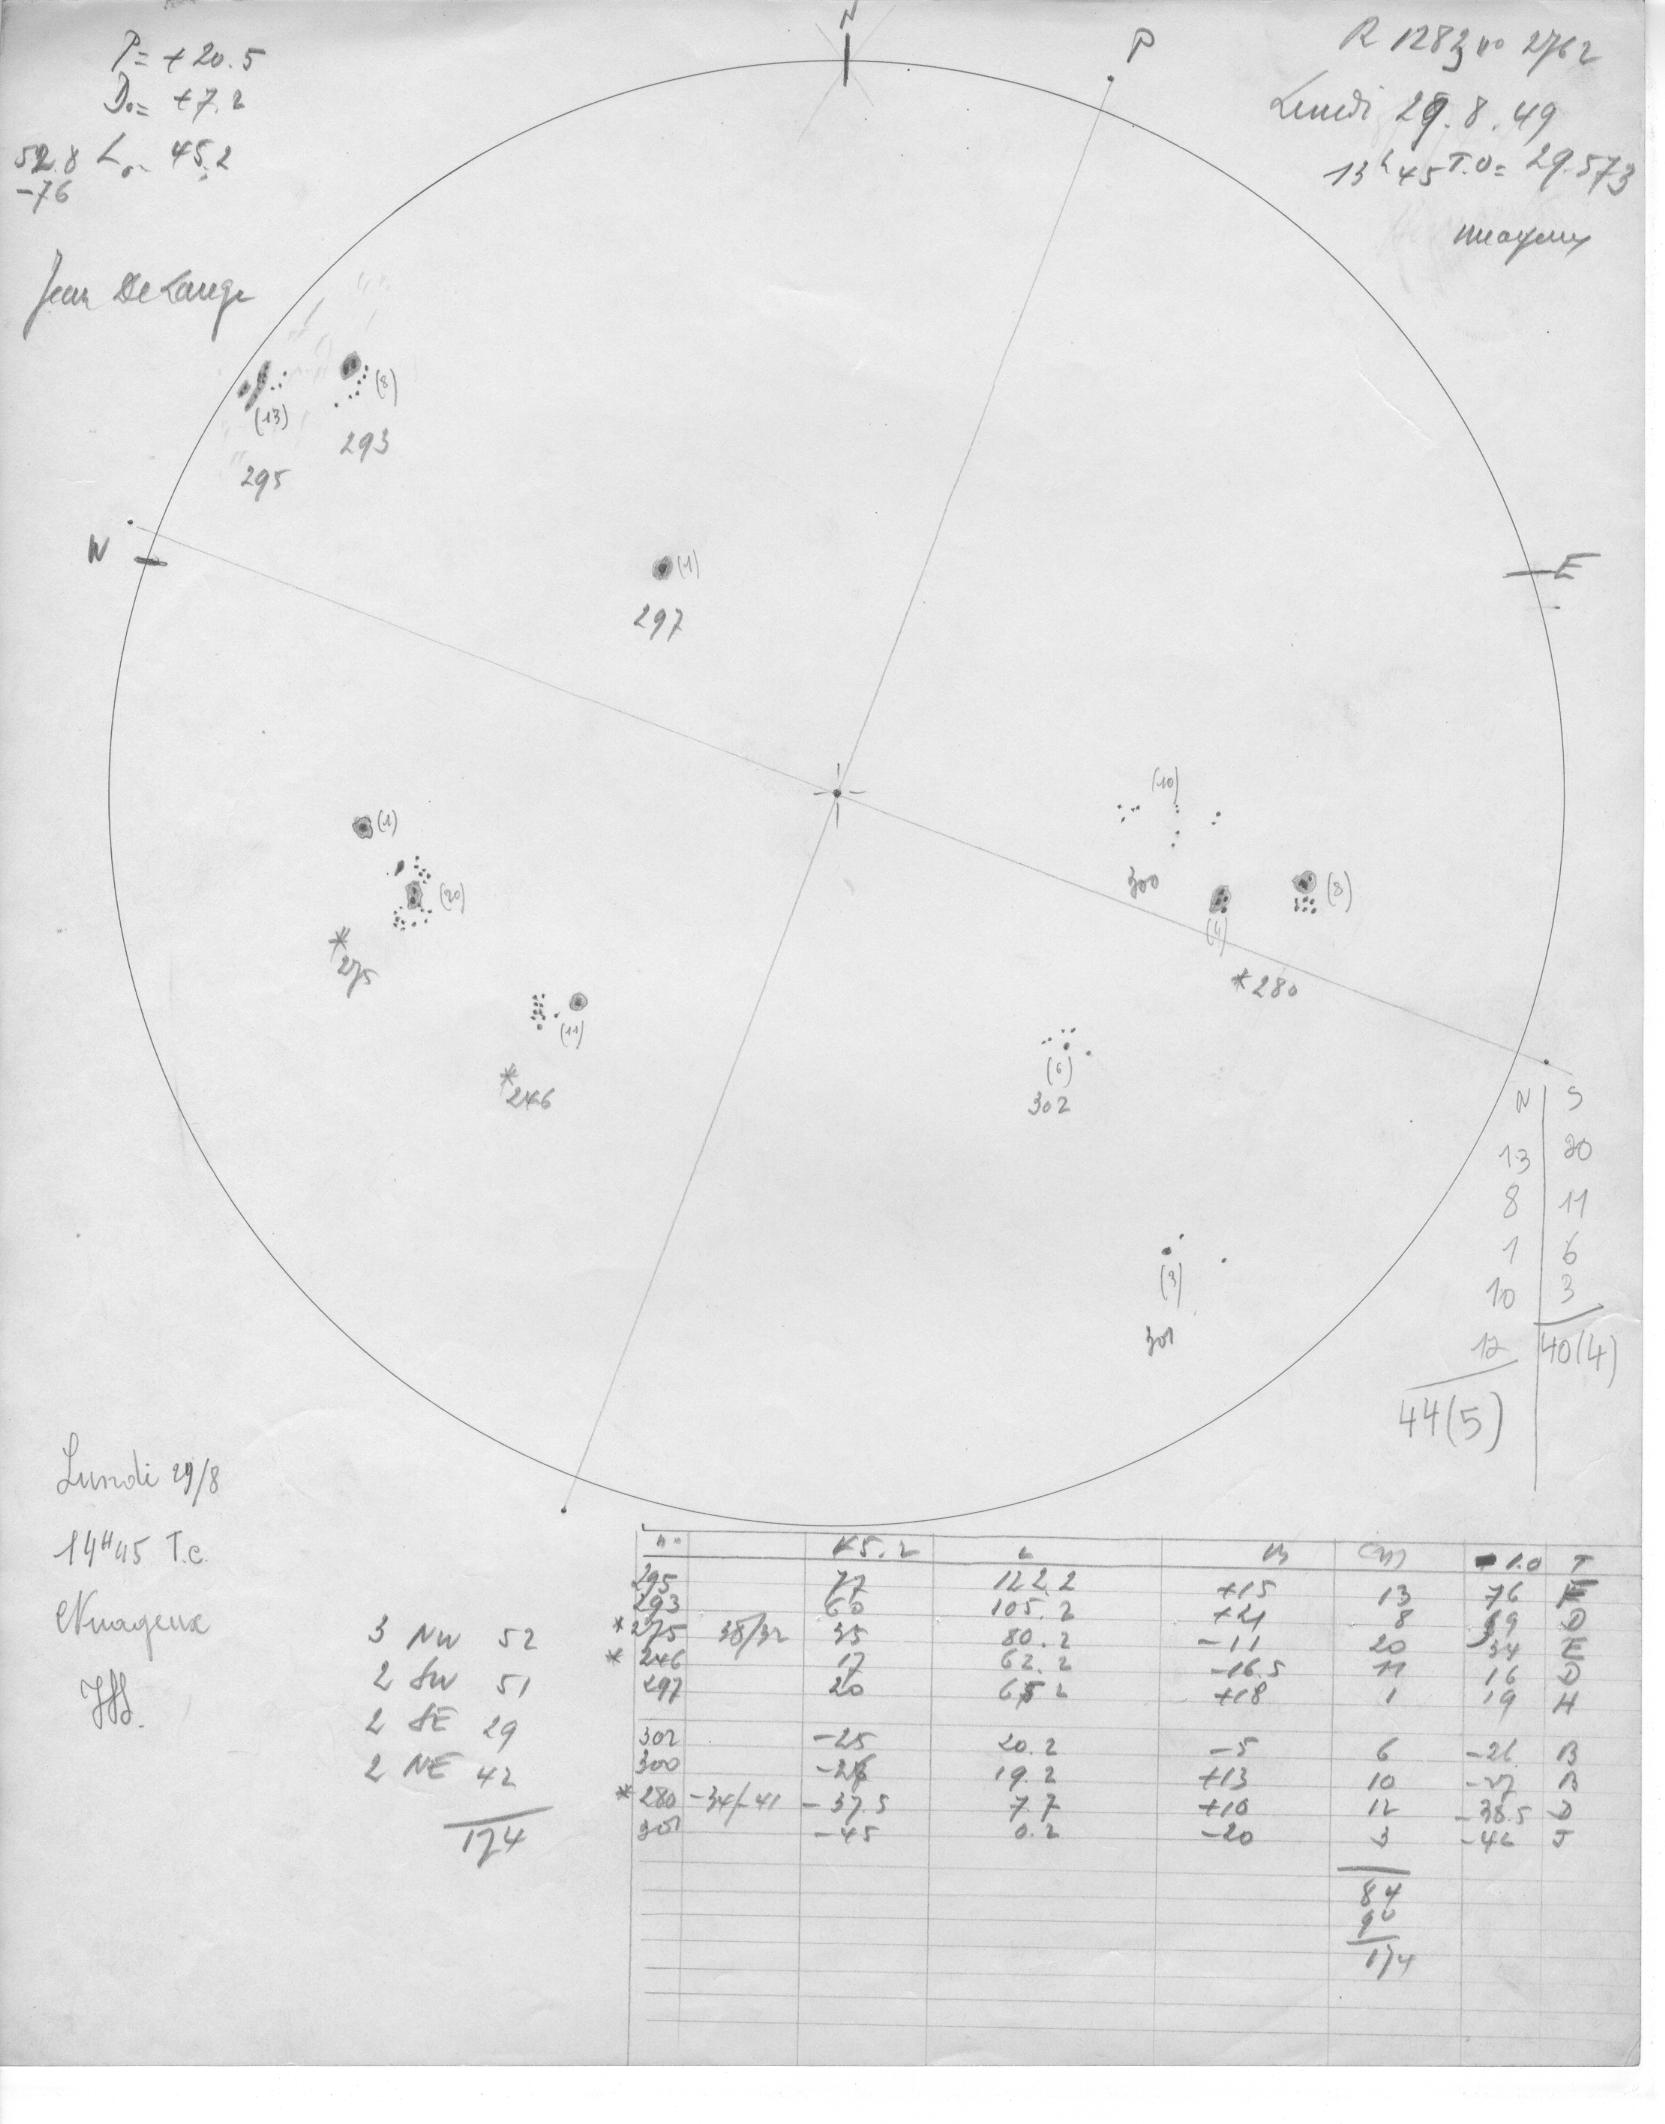 N
P
P= +20.5
D₀= +7.2
52.8 L₀= 45.2
-76
Jean De Lange
R 1283 no 2762
Lundi 29.8.49
13h45 T.U= 29.573
nuageux
(8)
(13)
293
295
W
E
(1)
297
(10)
(1)
300
(8)
(20)
(4)
*275
*280
(11)
(6)
*246
302
N S
13 20
8 11
1 6
10 3
12 40(4)
44(5)
(3)
301
Lundi 29/8
14H45 T.c.
Nuageux
3 NW 52
2 SW 51
2 SE 29
2 NE 42
174
n° 45.2 L B (m) -1.0 T
295 77 122.2 +15 13 76 E
293 60 105.2 +21 8 59 D
*275 38/32 35 80.2 -11 20 34 E
*246 17 62.2 -16.5 11 16 D
297 20 65.2 +18 1 19 H
302 -25 20.2 -5 6 -26 B
300 -26 19.2 +13 10 -27 B
*280 -34/-41 -37.5 7.7 +10 12 -38.5 D
301 -45 0.2 -20 3 -46 J
84
90
174